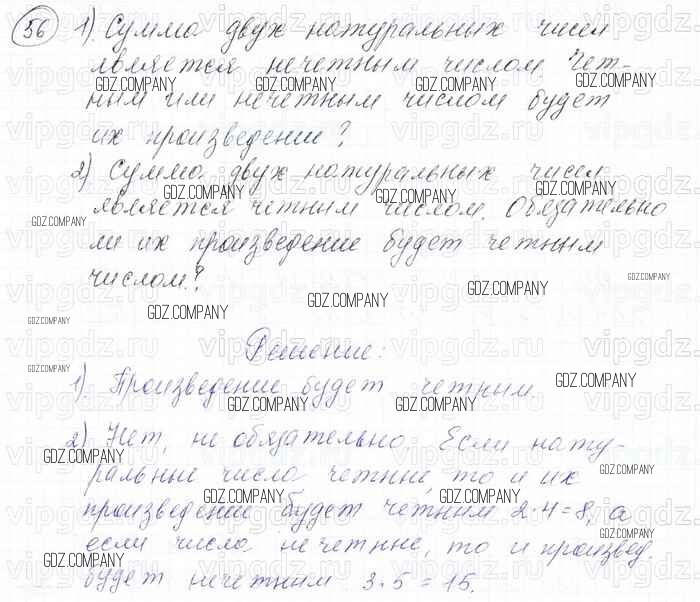 56 1) Сумма двух натуральных чисел
является нечетным числом. Чет-
ным или нечетным числом будет
их произведение?
2) Сумма двух натуральных чисел
является четным числом. Обязательно
ли их произведение будет четным
числом?
Решение:
1). Произведение будет четным.
2) Нет, не обязательно. Если нату-
ральные числа четные, то и их
произведение будет четным 2·4=8, а
если числа нечетные, то и произвед.
будет нечетным 3·5=15.